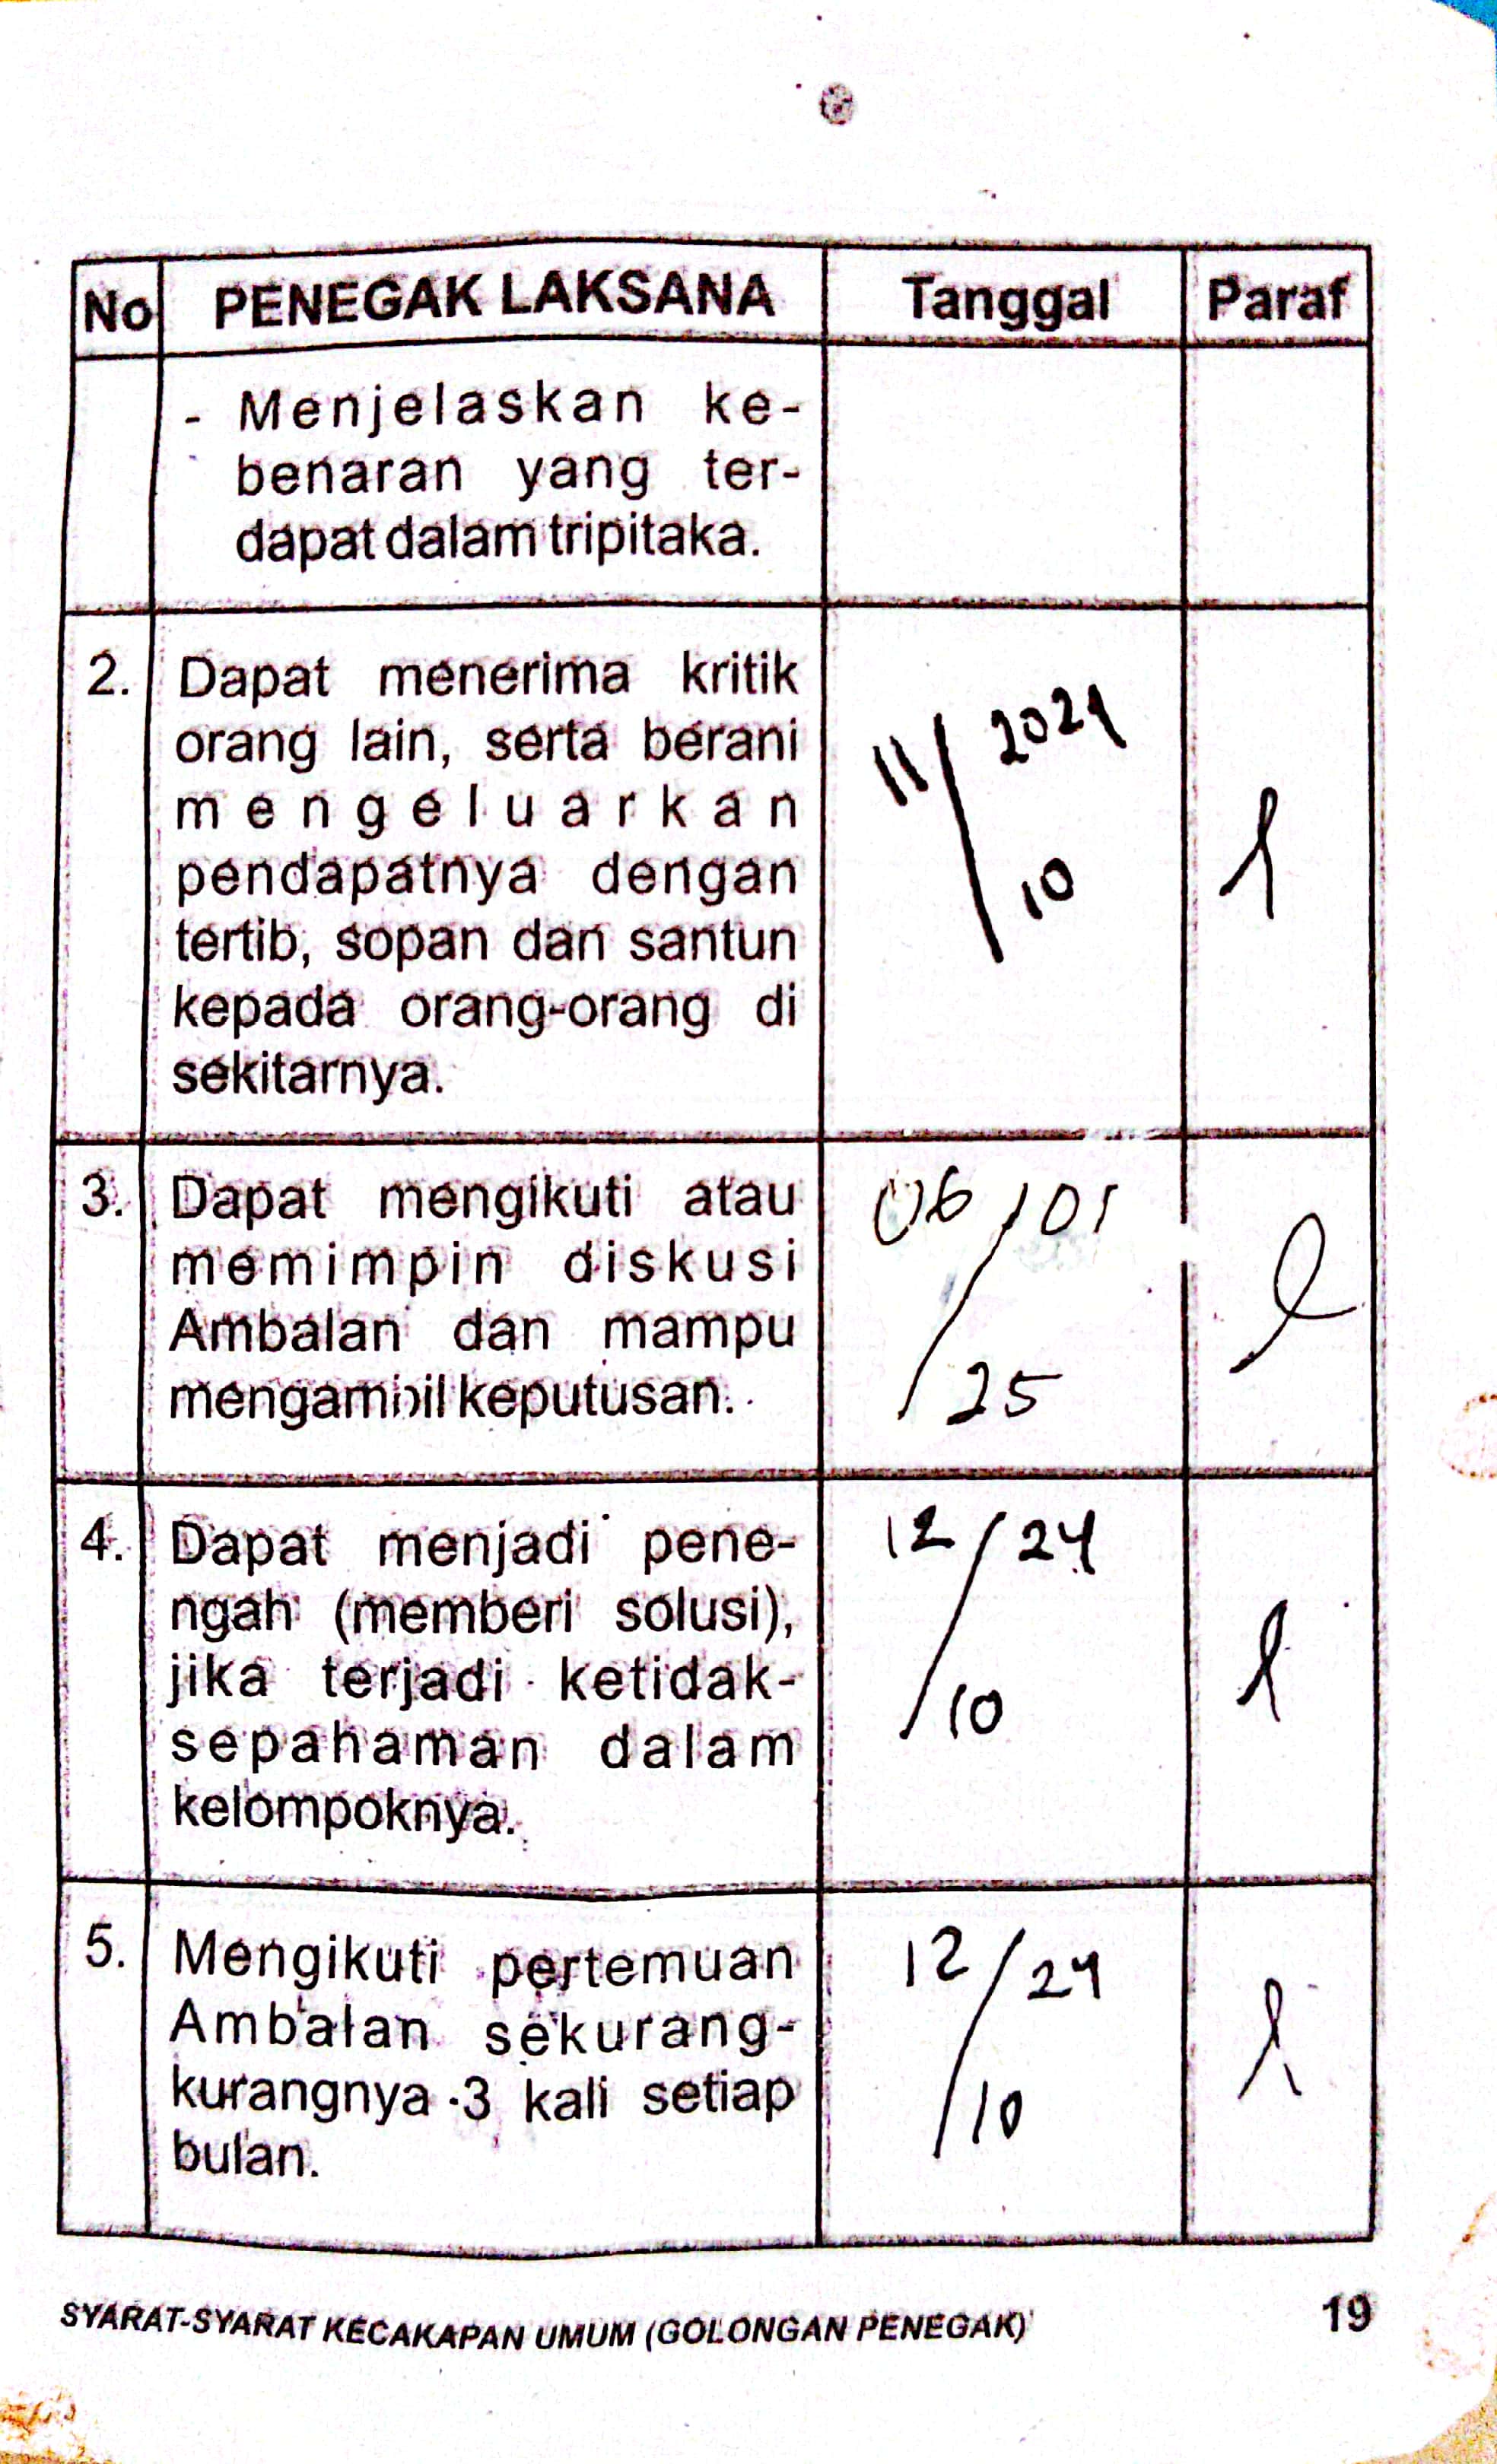 No PENEGAK LAKSANA Tanggal Paraf
- Menjelaskan ke-
benaran yang ter-
dapat dalam tripitaka.
2. Dapat menerima kritik
orang lain, serta berani
mengeluarkan
pendapatnya dengan
tertib, sopan dan santun
kepada orang-orang di
sekitarnya.
11/2024
10
3. Dapat mengikuti atau
memimpin diskusi
Ambalan dan mampu
mengambil keputusan.
06/01
25
4. Dapat menjadi pene-
ngah (memberi solusi),
jika terjadi ketidak-
sepahaman dalam
kelompoknya.
12/24
10
5. Mengikuti pertemuan
Ambalan sekurang-
kurangnya 3 kali setiap
bulan.
12/24
10
SYARAT-SYARAT KECAKAPAN UMUM (GOLONGAN PENEGAK) 19